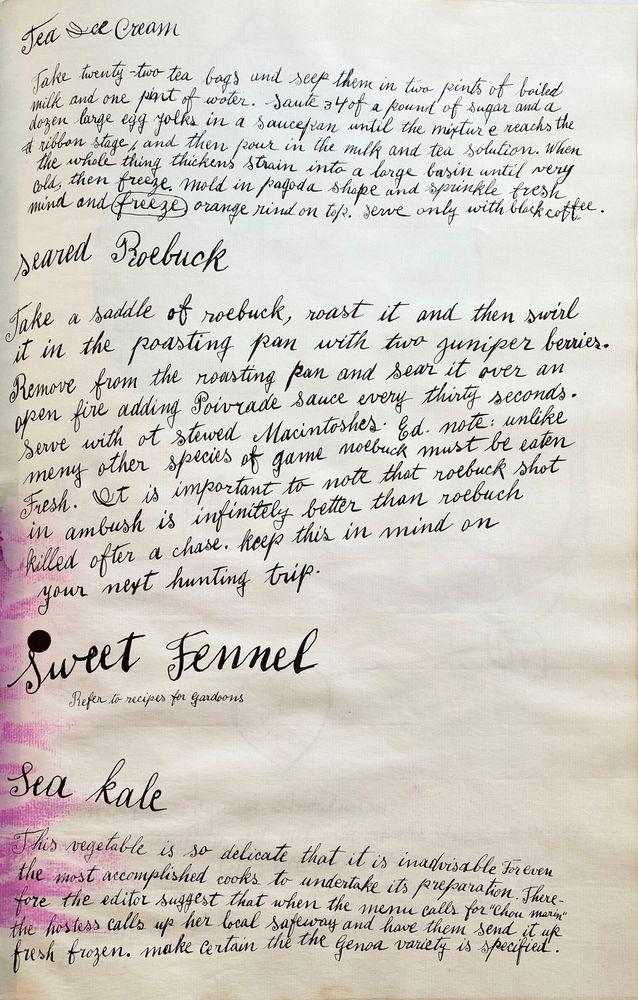 Tea Ice Cream
Take twenty-two tea bags and seep them in two pints of boiled
milk and one pint of water. Saute 3/4 of a pound of sugar and a
dozen large egg yolks in a saucepan until the mixture reachs the
ribbon stage, and then pour in the milk and tea solution. When
the whole thing thickens strain into a large basin until very
cold, then freeze. Mold in pagoda shape and sprinkle fresh
mind and freeze orange rind on top. serve only with black coffee.
seared Roebuck
Take a saddle of roebuck, roast it and then swirl
it in the poasting pan with two juniper berries.
Remove from the roasting pan and sear it over an
open fire adding Poivrade sauce every thirty seconds.
Serve with ot stewed Macintoshes. Ed. note: unlike
meny other species of game noebuck must be eaten
Fresh. It is important to note that roebuck shot
in ambush is infinitely better than roebuch
killed ofter a chase. keep this in mind on
your next hunting trip.
Sweet Fennel
Refer to recipes for Gardoons
Sea kale
This vegetable is so delicate that it is inadvisable For even
the most accomplished cooks to undertake its preparation. There-
fore the editor suggest that when the menu calls for "Chou marin"
the hostess calls up her local safeway and have them send it up
fresh frozen. make certain the the Genoa variety is specified.